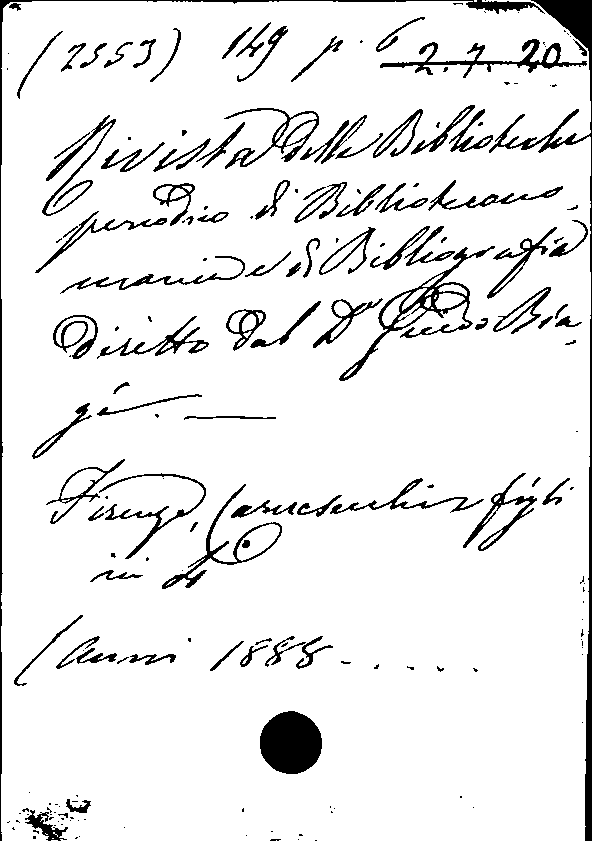 (2553) 149 p. 6 2.7.20
Rivista delle Biblioteche
periodico di Bibliotecono-
mania e di Bibliografia
diretto dal Dr Guido Bia-
gi. —
Firenze, Carnesecchi e figli
in 4°
(Anni 1888 - . . . . .